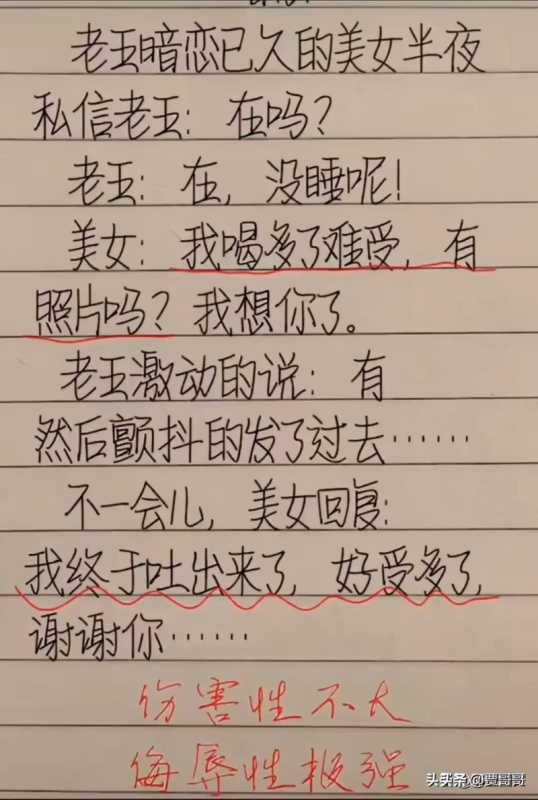 老王暗恋已久的美女半夜
私信老王：在吗？
老王：在，没睡呢！
美女：我喝多了难受，有
照片吗？我想你了。
老王激动的说：有
然后颤抖的发了过去……
不一会儿，美女回复：
我终于吐出来了，好受多了，
谢谢你……
伤害性不大
侮辱性极强
头条 @贾哥哥